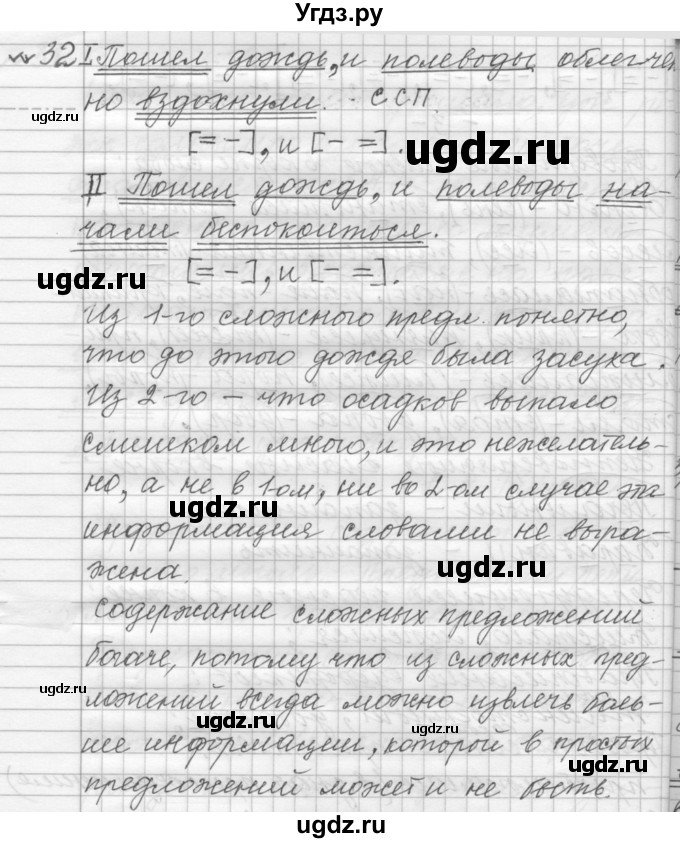 Угдз.ру
№32 I Пошел дождь, и полеводы облегчен
но вздохнули. - ССП.
[= -], и [- =].
ugdz.ru
ugdz.ru
II Пошел дождь, и полеводы на-
чали беспокоиться.
[= -], и [- =].
ugdz.ru
Из 1-го сложного предл. понятно,
что до этого дождя была засуха.
Из 2-го - что осадков выпало
слишком много, и это нежелатель-
но, а не в 1-ом, ни во 2-ом случае эта
ugdz.ru
информация словами не выра-
жена.
ugdz.ru
Содержание сложных предложений
богаче, потому что из сложных пред-
ложений всегда можно извлечь боль-
ugdz.ru
ugdz.ru
ugdz.ru
шее информации, которой в простых
ugdz.ru
предложений может и не быть.
ugdz.ru